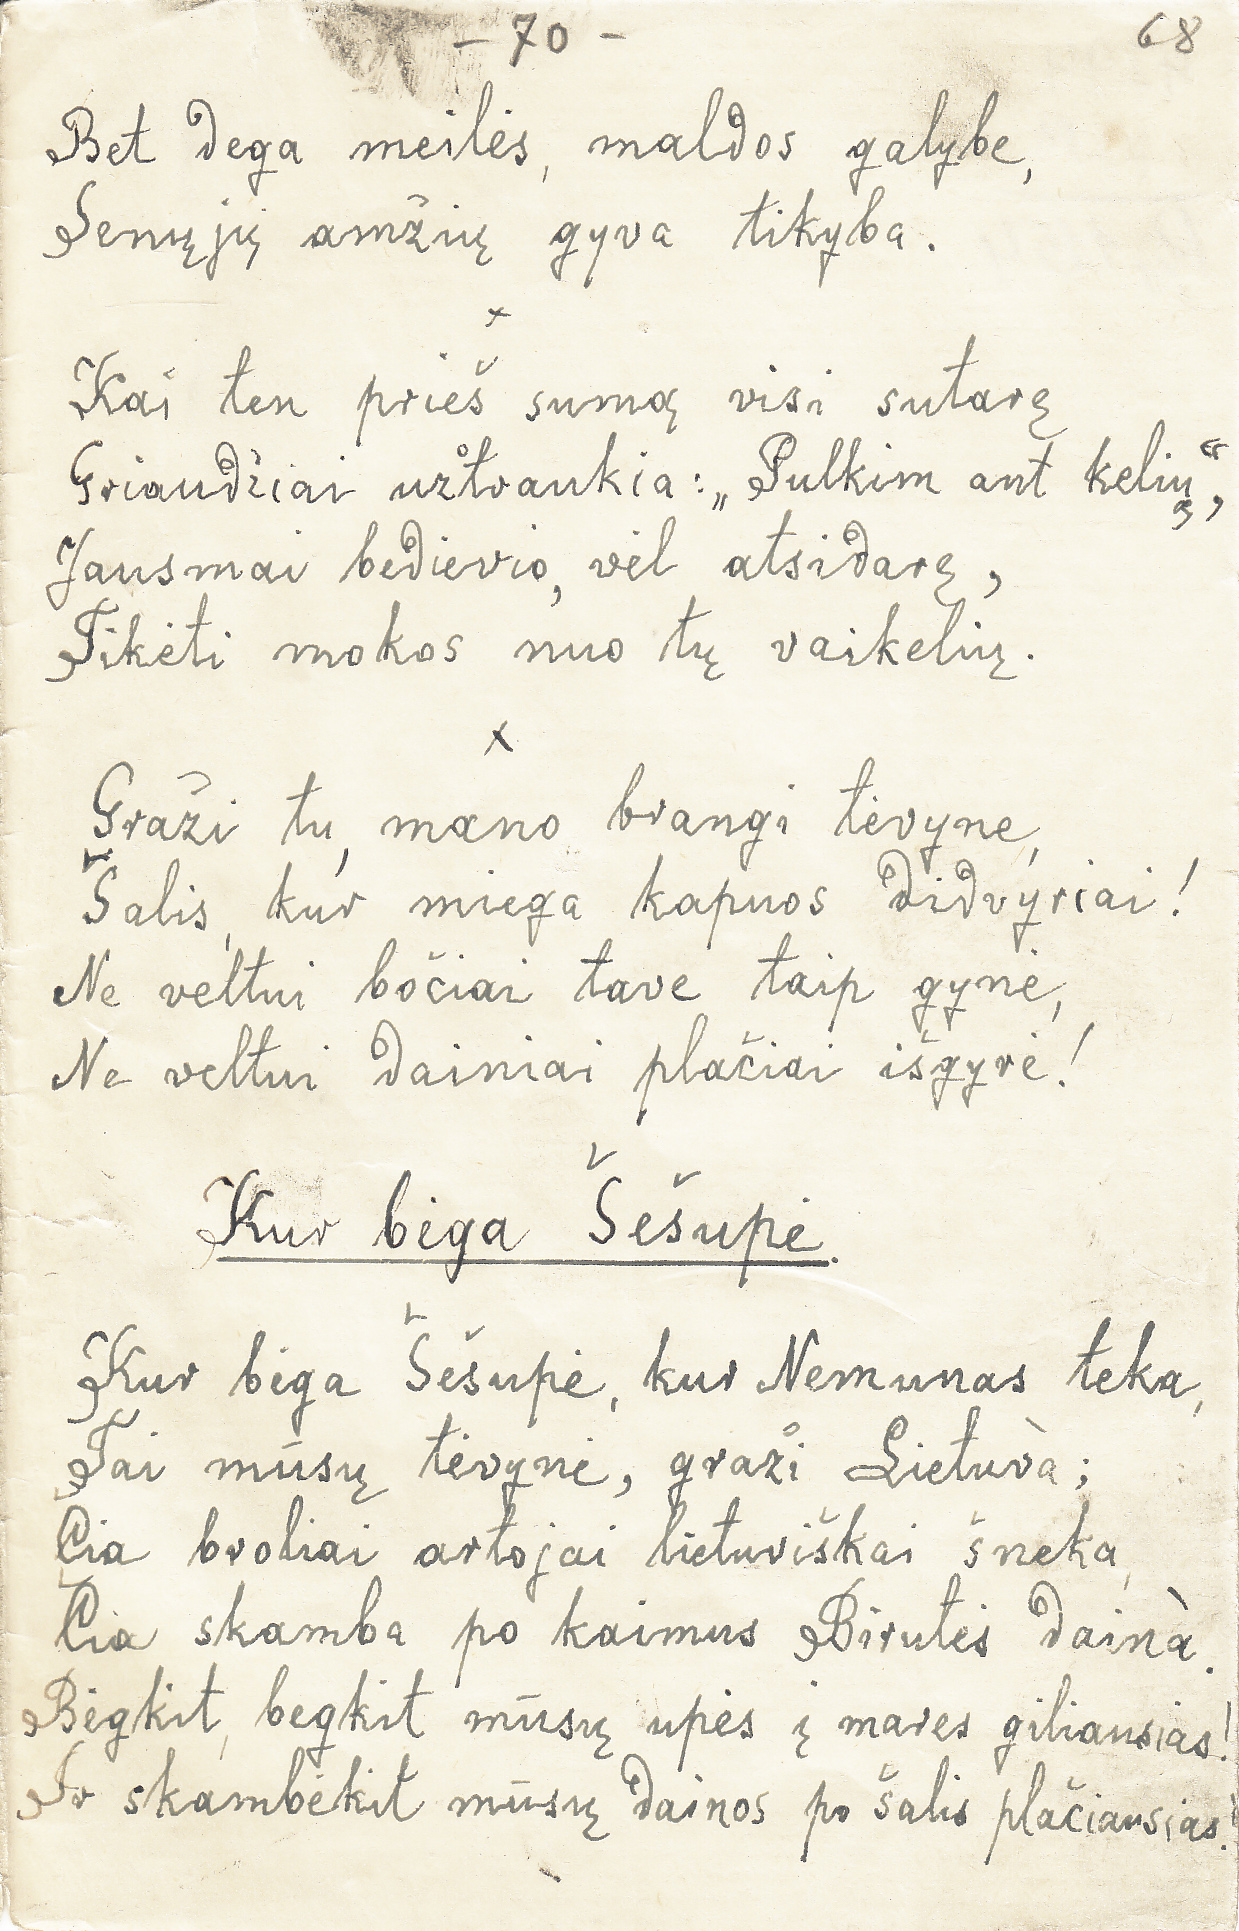 - 70 -
68
Bet dega meilės, maldos galybe,
Senųjų amžių gyva tikyba.
x
Kai ten prieš sumą visi sutarę
Griaudžiai užtraukia: „Pulkim ant kelių“,
Jausmai bedievio, vėl atsidarę,
Tikėti mokos nuo tų vaikelių.
x
Graži tu, mano brangi tėvyne,
Šalis, kur miega kapuos didvyriai!
Ne veltui bočiai tave taip gynė,
Ne veltui dainiai plačiai išgyrė!
Kur bėga Šešupė.
Kur bėga Šešupė, kur Nemunas teka,
Tai mūsų tėvynė, graži Lietuvà;
Čia broliai artojai lietuviškai šneka,
Čia skamba po kaimus Birutės dainà.
Bėgkit, begkit mūsų upės į mares giliausias!
Ir skambėkit mūsų dainos po šalis plačiausias!